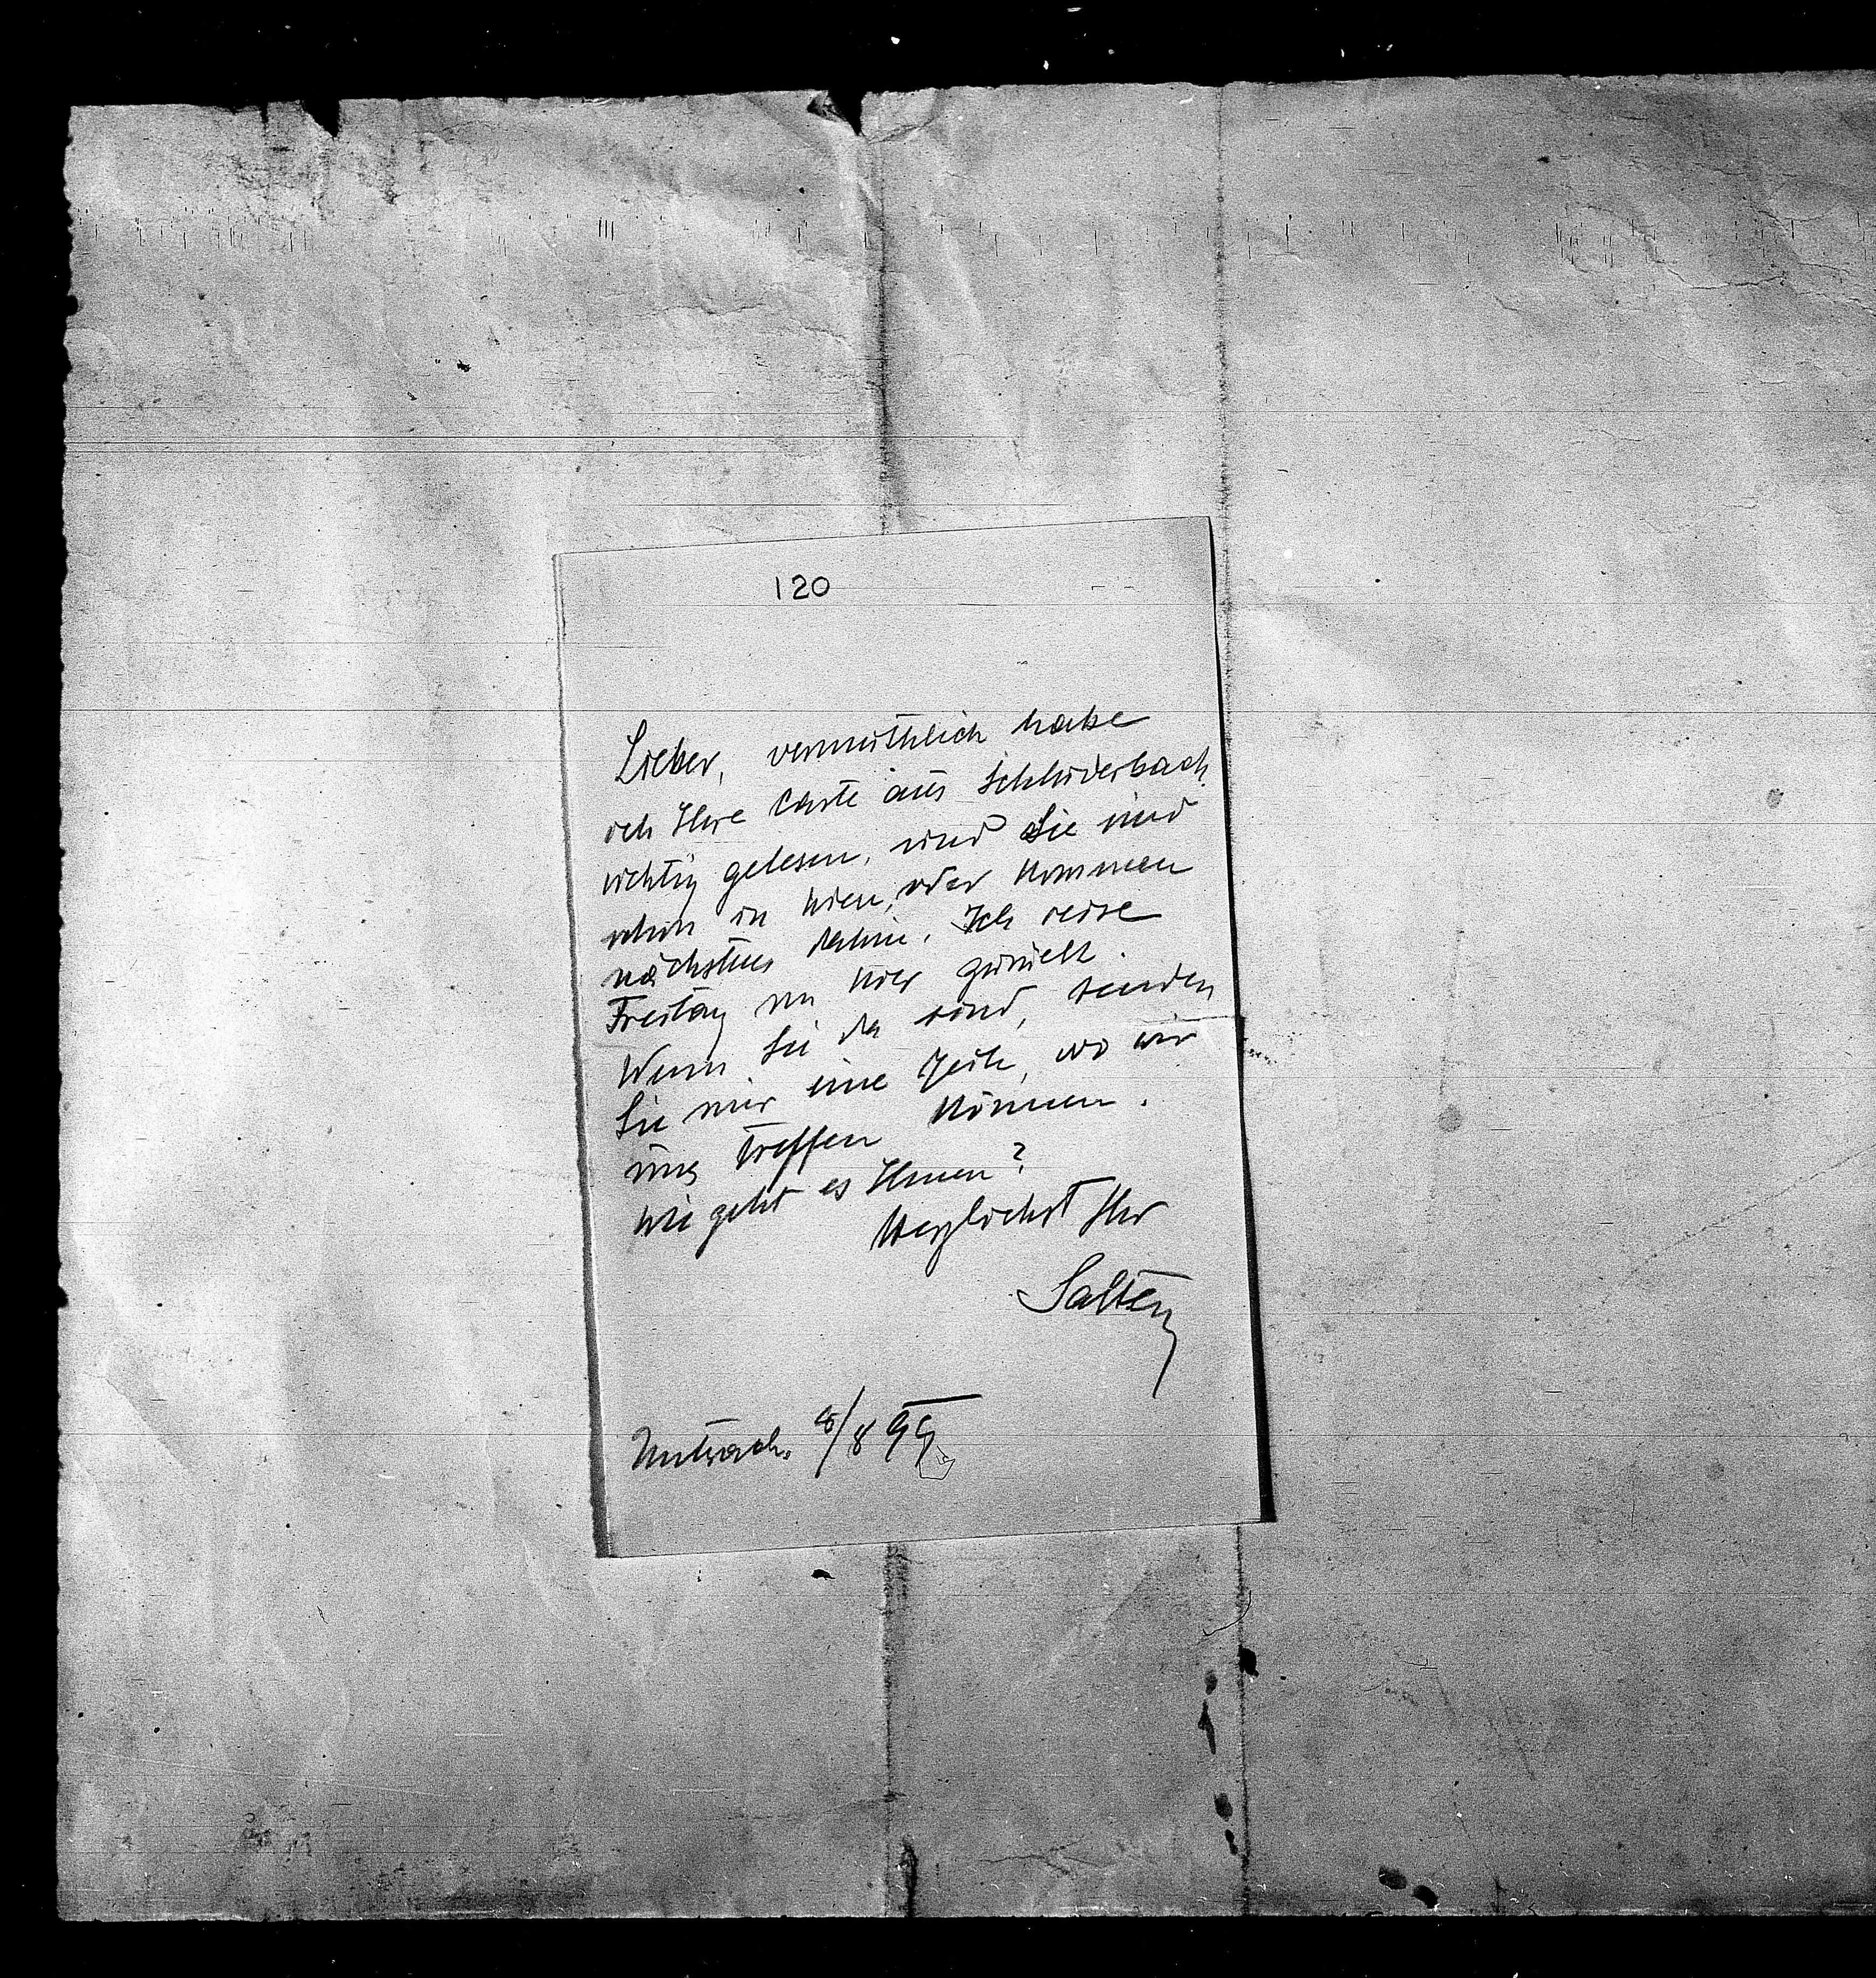 120
Lieber, vermuthlich habe
ich Ihre Carte aus Schluderbach
richtig gelesen, und Sie sind
schon in Wien, oder kommen
nächstens dahin. Ich reise
Freitag von hier zurück.
Wenn Sie da sind, senden
Sie mir eine Zeile, wo wir
uns treffen können.
Wie geht es Ihnen?
Herzlichst Ihr
Salten
Unterach. 8/8 99